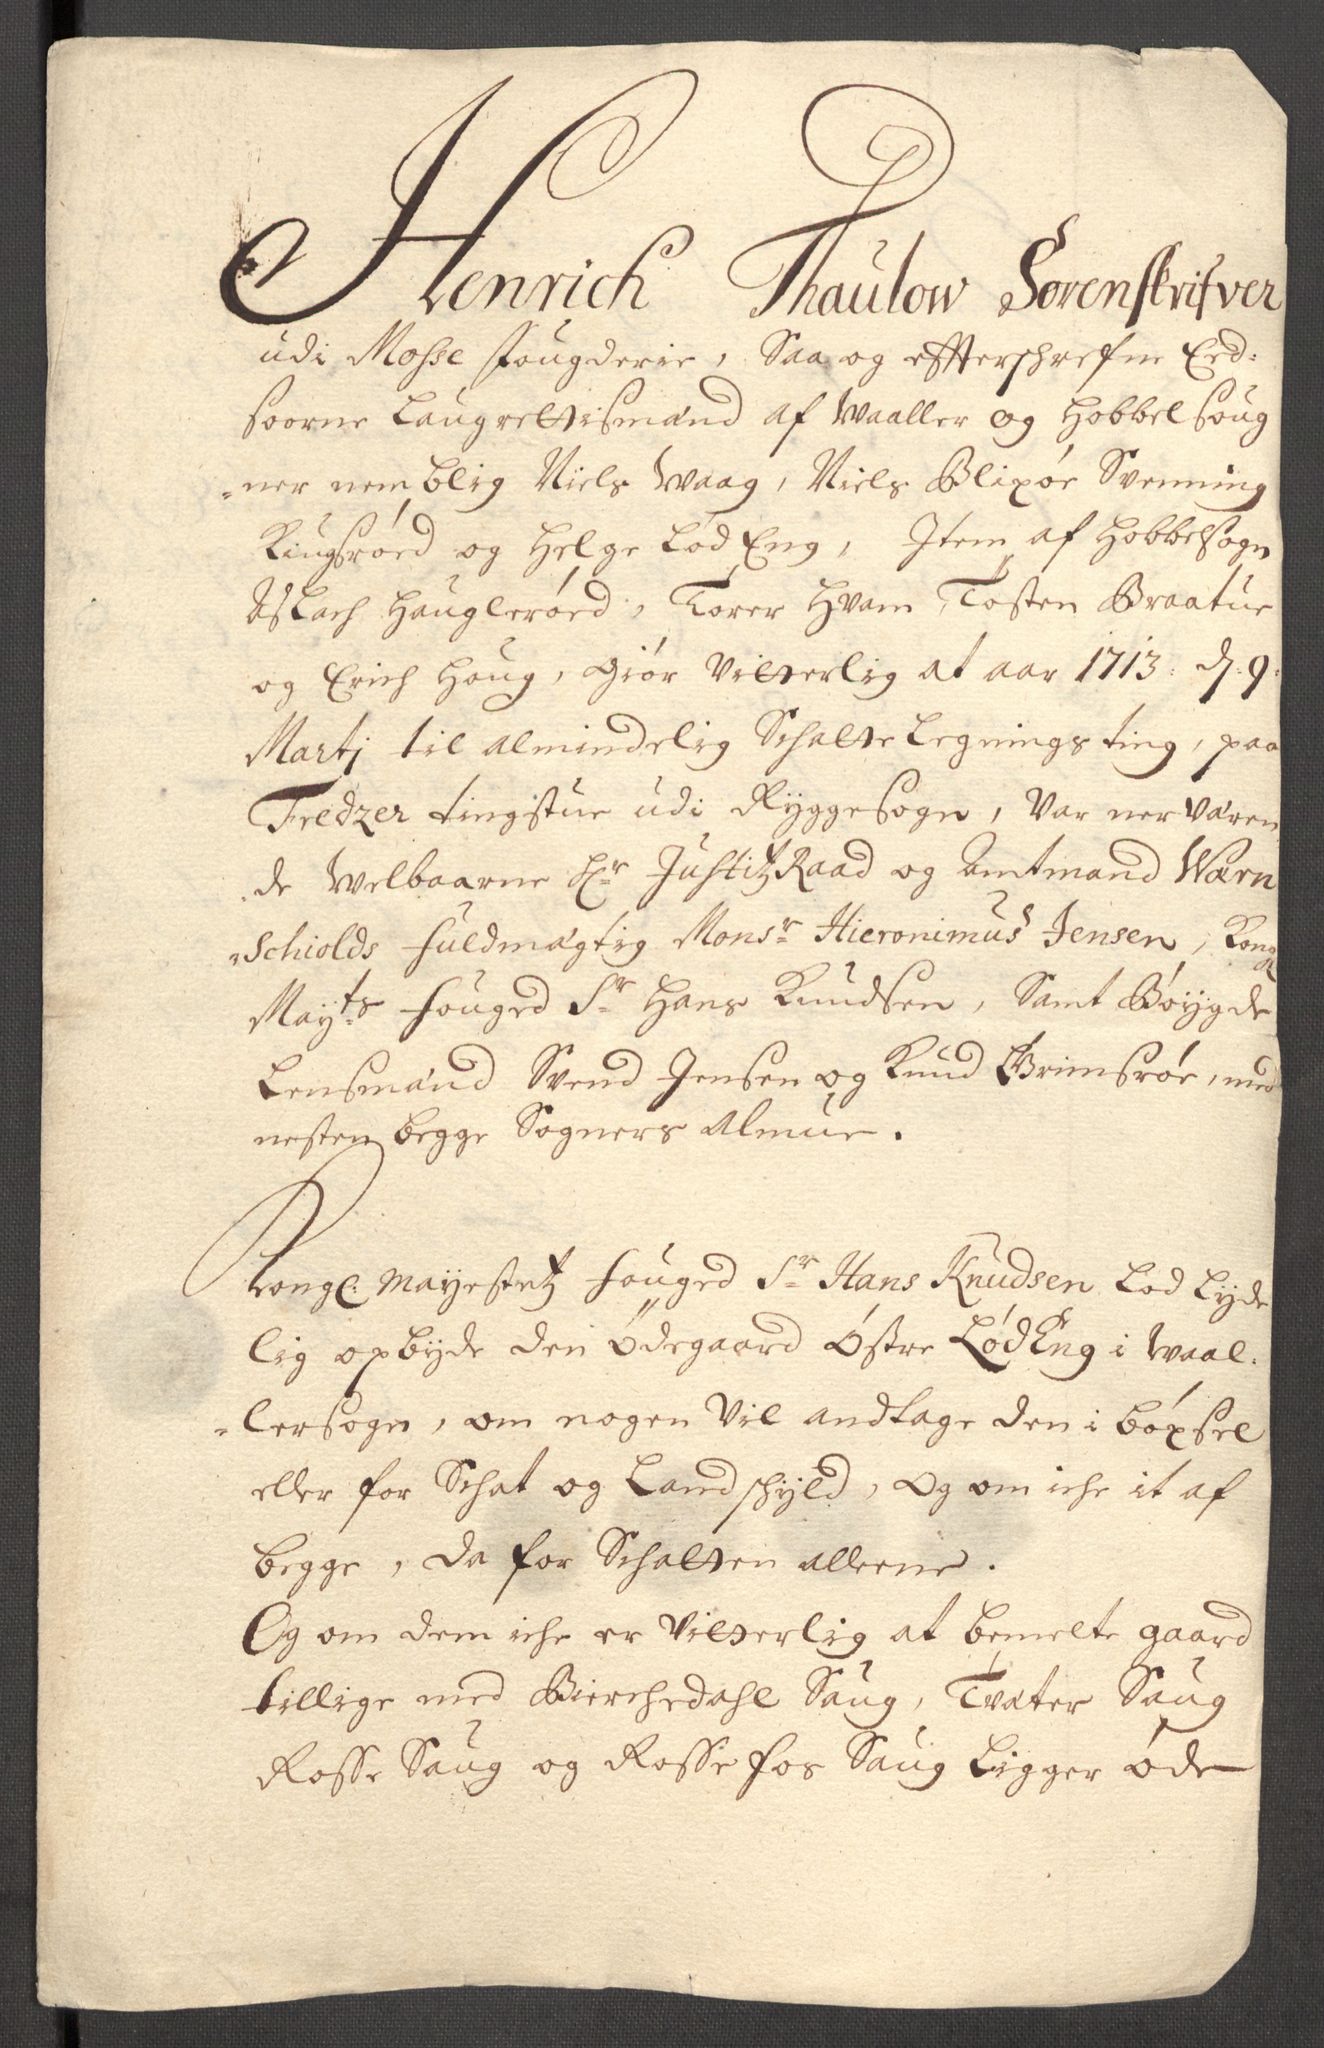 Henrich Thaulow Sorenskrifver
udi Mosse fougderie, Saa og effterschrefne Eed-
soorne Laugrettismænd af Waaller og Hobbel soug
-ner nemblig Niels Waag, Niels Blixøe Svenning
Kiugsrøed og Helge Lød Eng, Item af Hobbelsogn
Aslach Hauglerøed, Torer Hvam Tosten Braatue
og Erich Houg, Giør Vitterlig at aar 1713: d. 9:
Martj til almindelig Schatte Legnings ting, paa
Fredzer tingstue udi Ryggesogn, Var nerværen
-de Welbaarne Hr Justitz Raad og Amtmand Wærn
-Schiolds fuldmægtig Monsr Hieronimus Jensen, Kongl
Mayts fouged Sr Hans Knudsen, Samt Bøygde
Lensmænd Svend Jensen og Knud Grimsrøe, med
nesten begge Sogners Almue.
Kongl: Mayestetz fouged Sr Hans Knudsen Lod Lyde
lig opbyde den Ødegaard Østre LødEng i Waal-
-lersogn, om nogen Vil andtage den i bøxsel
eller for Schat og Landschyld, Og om iche it af
begge, da for Schatten alleene.
Og om dem iche er Vitterlig at bemelte gaard
tillige med Bierchedahl Saug, Tvæter Saug
Rosse Saug og Rosse fos Saug Ligger øde